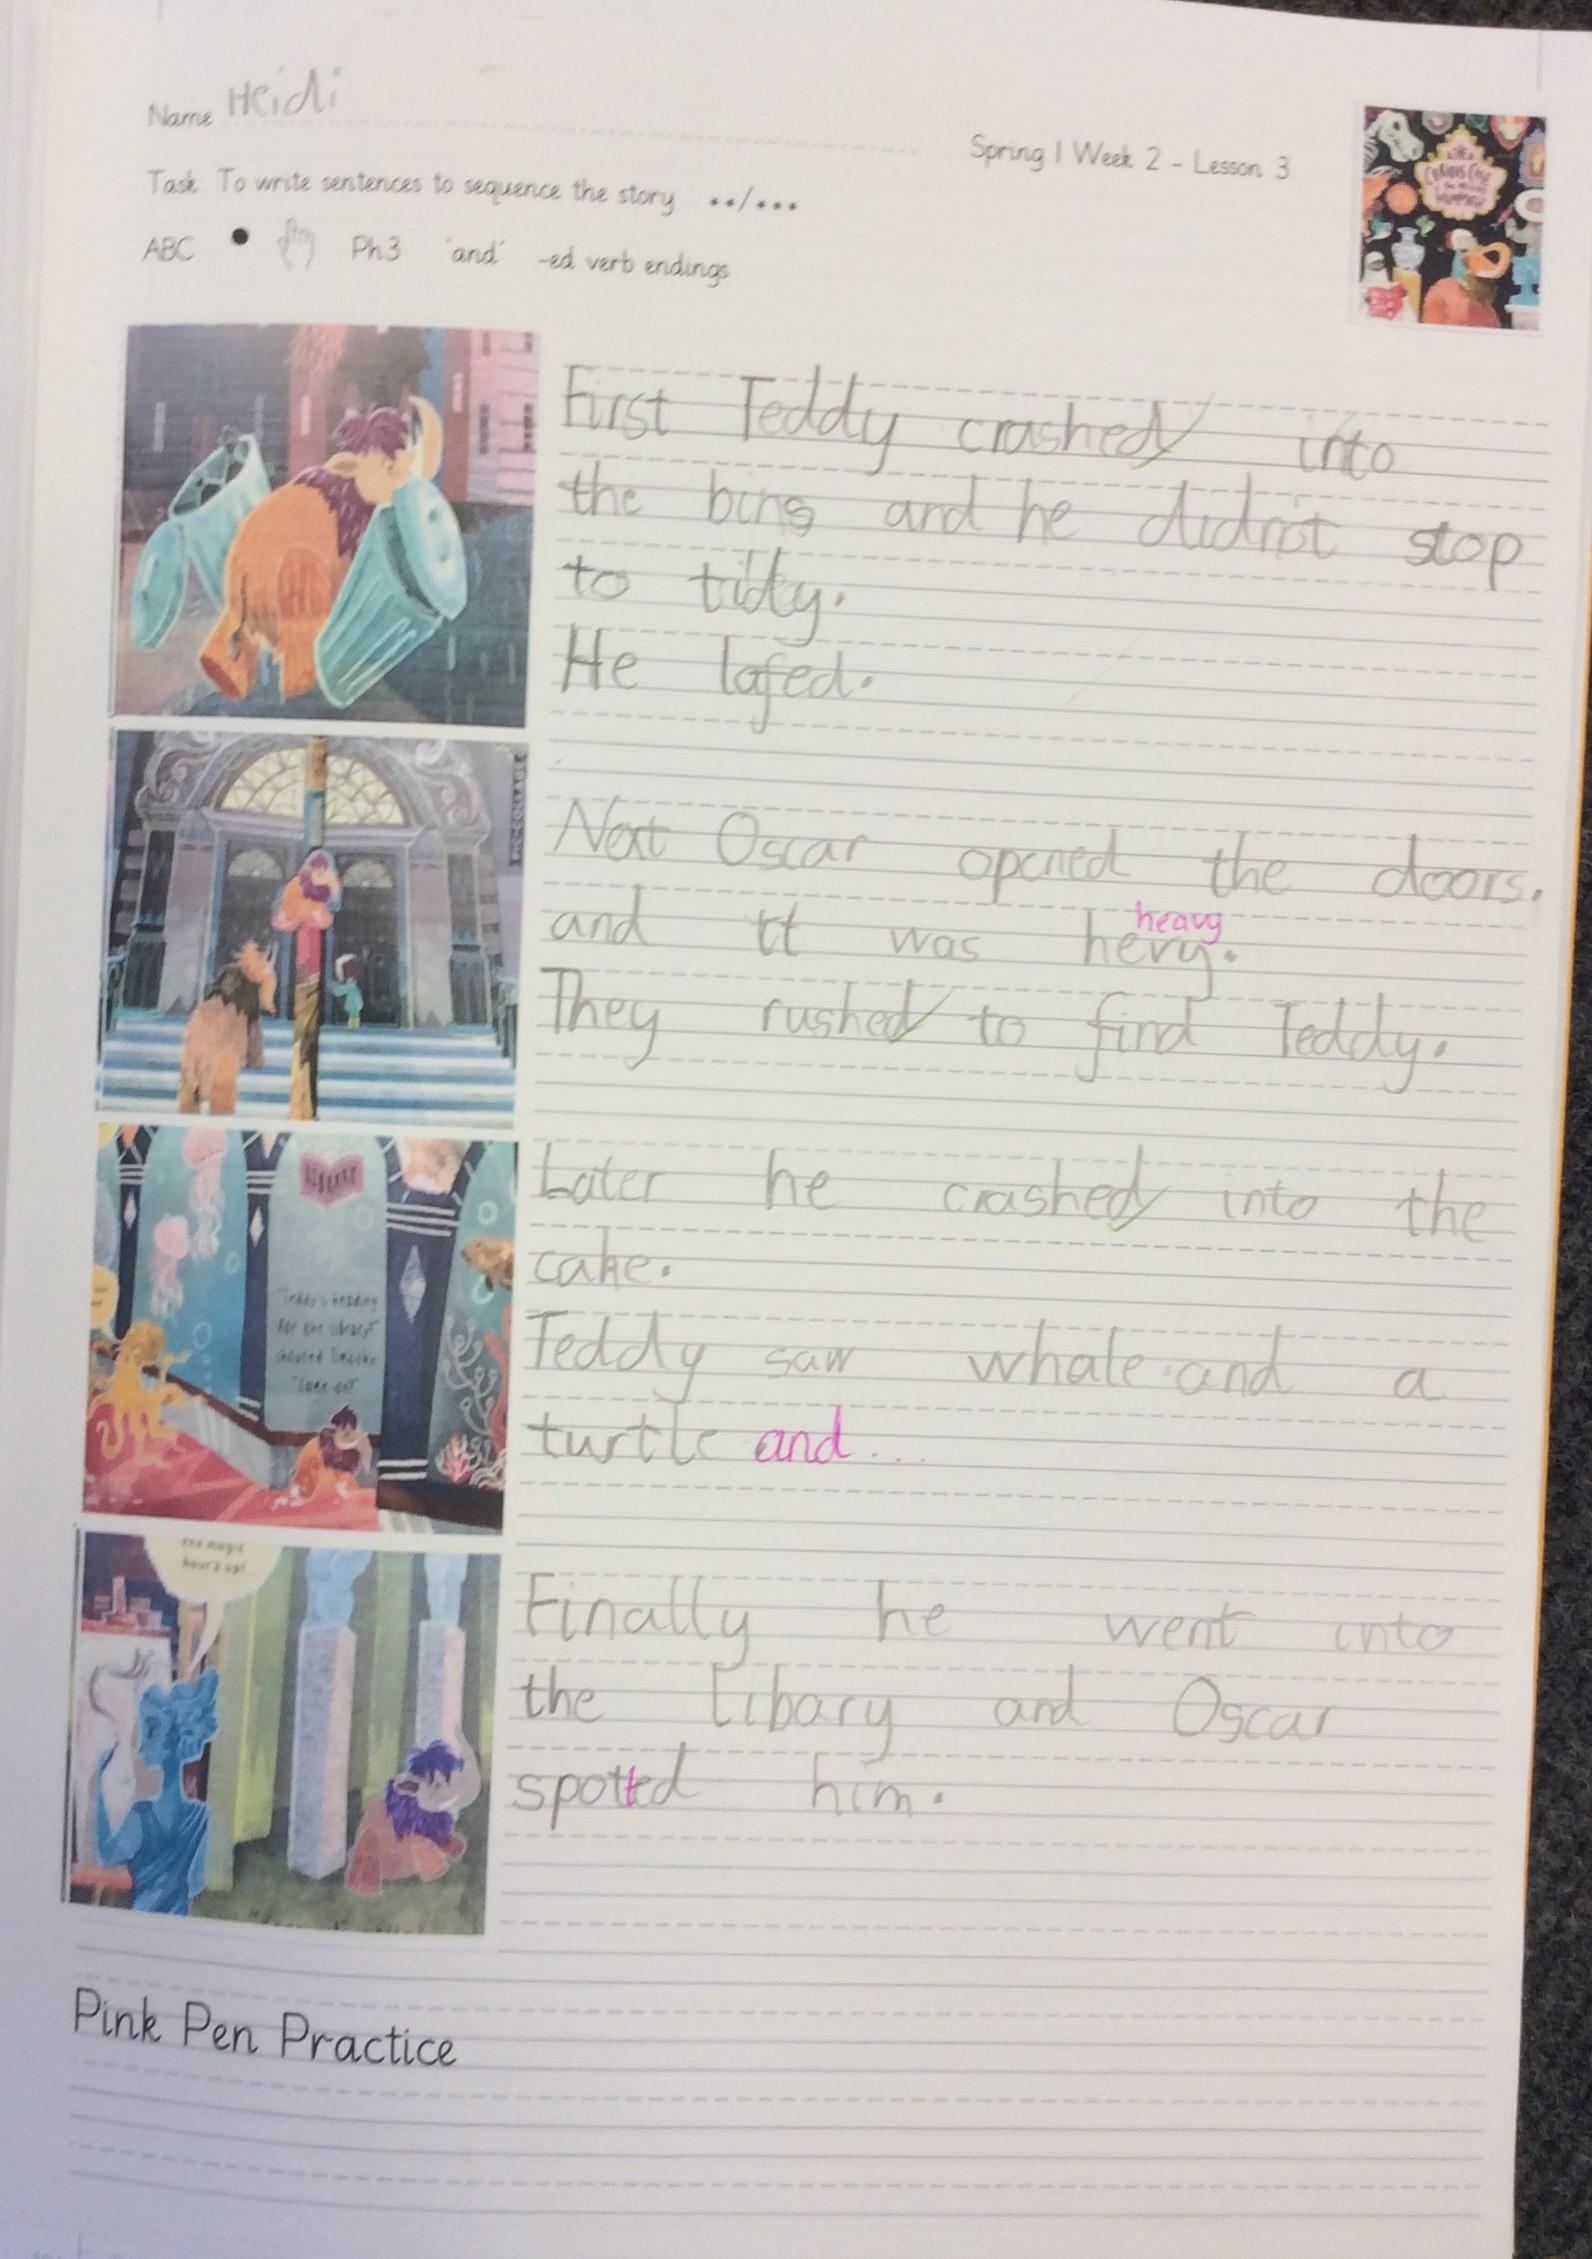 Name Heidi
Spring 1 Week 2 - Lesson 3
Task To write sentences to sequence the story **/***
ABC Ph3 'and' -ed verb endings
CURIOUS CASE
MAMMOTH
First Teddy crashed into
the bins and he didn't stop
to tidy.
He lafed.
Next Oscar opened the doors.
and it was hevy.
heavy
They rushed to find Teddy.
Later he crashed into the
cake.
Teddy saw whale and a
turtle and...
"Teddy's heading
for the library!"
shouted
"Come on!"
Finally he went into
the libary and Oscar
spotted him.
the magic
hour's up!
Pink Pen Practice